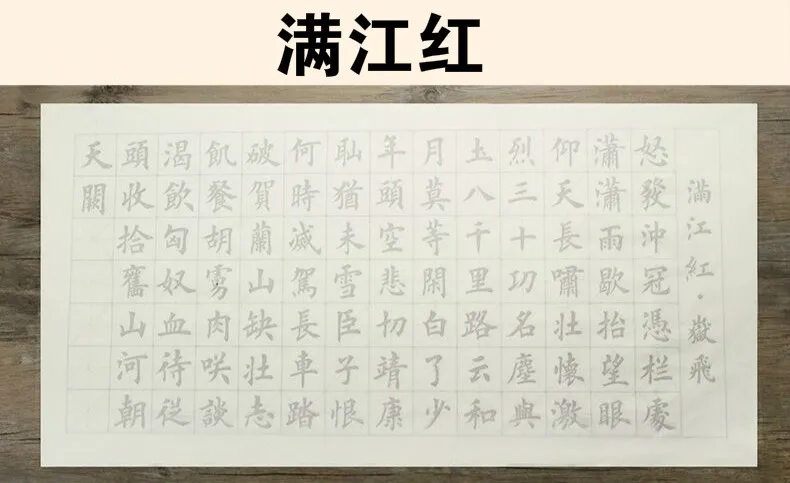 满江红
滿江紅·嶽飛
怒發沖冠憑栏處
瀟瀟雨歇抬望眼
仰天長嘯壮懷激
烈三十功名塵與
土八千里路云和
月莫等閑白了少
年頭空悲切靖康
耻猶未雪臣子恨
何時滅駕長車踏
破賀蘭山缺壮志
飢餐胡虜肉咲談
渴飲匈奴血待従
頭收拾舊山河朝
天闕